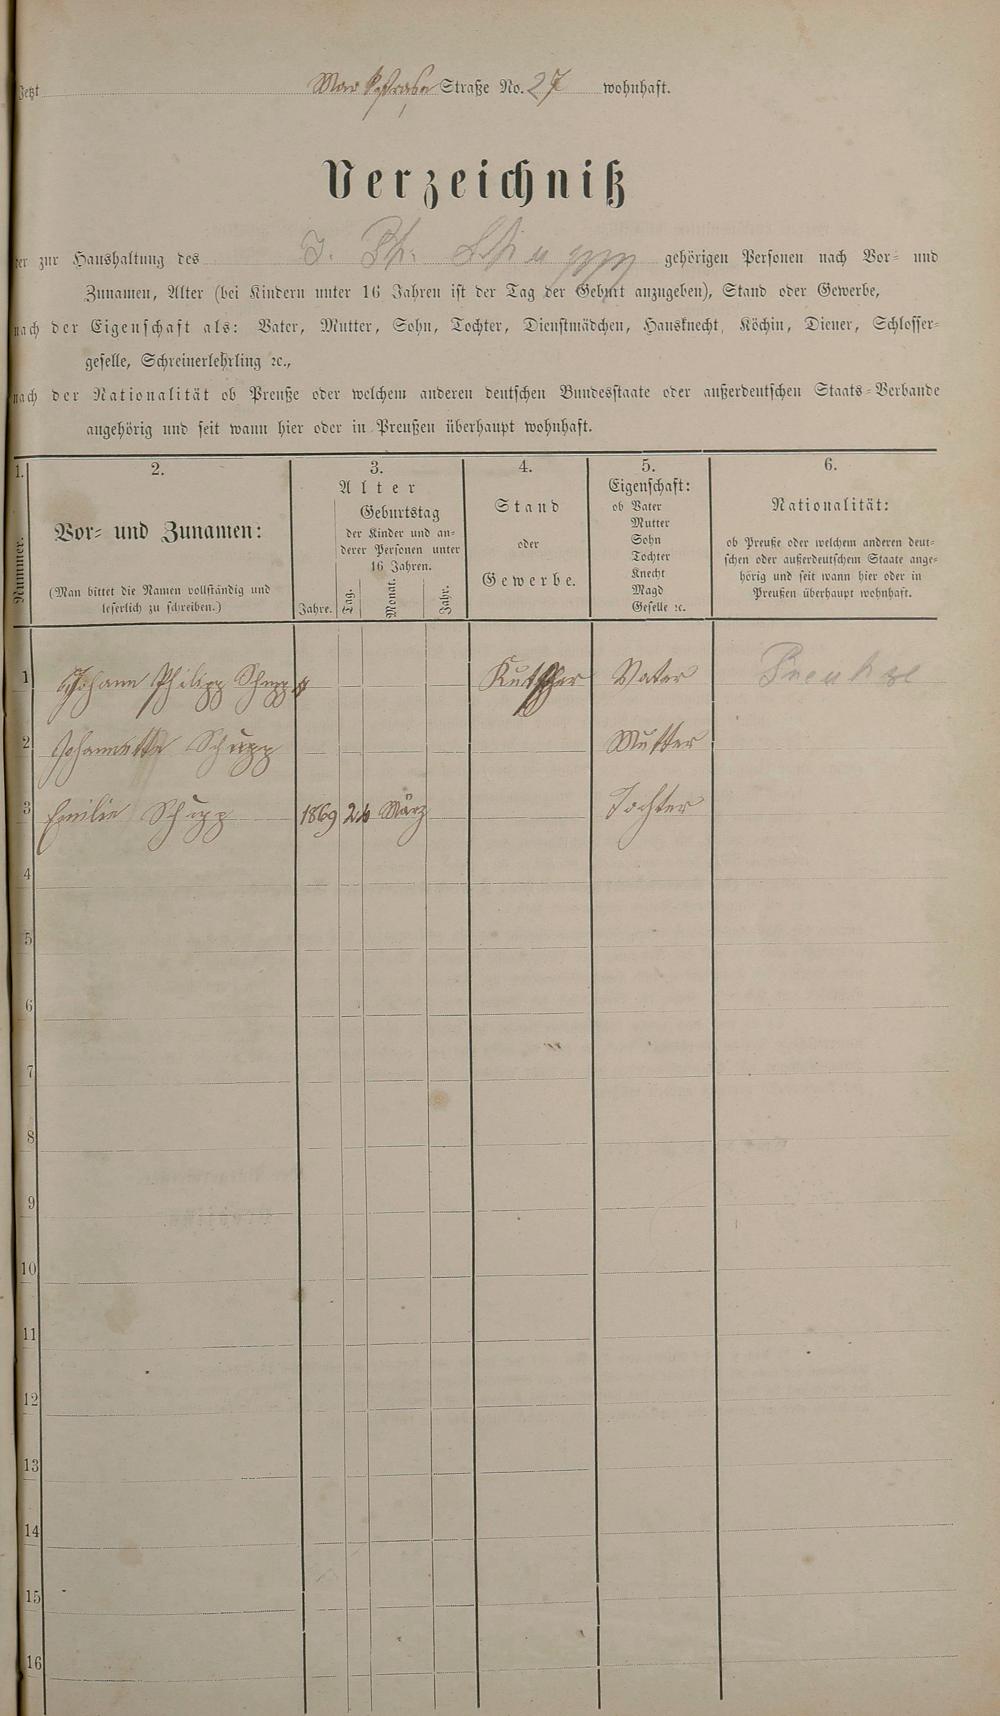 Jetzt Markstraße Straße No. 27 wohnhaft.
Verzeichniß
der zur Haushaltung des J. Ph. Schupp gehörigen Personen nach Vor- und
Zunamen, Alter (bei Kindern unter 16 Jahren ist der Tag der Geburt anzugeben), Stand oder Gewerbe,
nach der Eigenschaft als: Vater, Mutter, Sohn, Tochter, Dienstmädchen, Hausknecht, Köchin, Diener, Schlosser-
geselle, Schreinerlehrling ꝛc.,
nach der Nationalität ob Preuße oder welchem anderen deutschen Bundesstaate oder außerdeutschen Staats-Verbande
angehörig und seit wann hier oder in Preußen überhaupt wohnhaft.
1. 2. 3. 4. 5. 6.
Nummer.
Vor- und Zunamen:
(Man bittet die Namen vollständig und
leserlich zu schreiben.)
Alter
Geburtstag
der Kinder und an-
derer Personen unter
16 Jahren.
Jahre. Tag. Monat. Jahr.
Stand
oder
Gewerbe.
Eigenschaft:
ob Vater
Mutter
Sohn
Tochter
Knecht
Magd
Geselle ꝛc.
Nationalität:
ob Preuße oder welchem anderen deut-
schen oder außerdeutschem Staate ange-
hörig und seit wann hier oder in
Preußen überhaupt wohnhaft.
1 Johann Philipp Schupp Kutscher Vater Preuße
2 Johannette Schupp Mutter
3 Emilie Schupp 1869 24 März Tochter
4
5
6
7
8
9
10
11
12
13
14
15
16